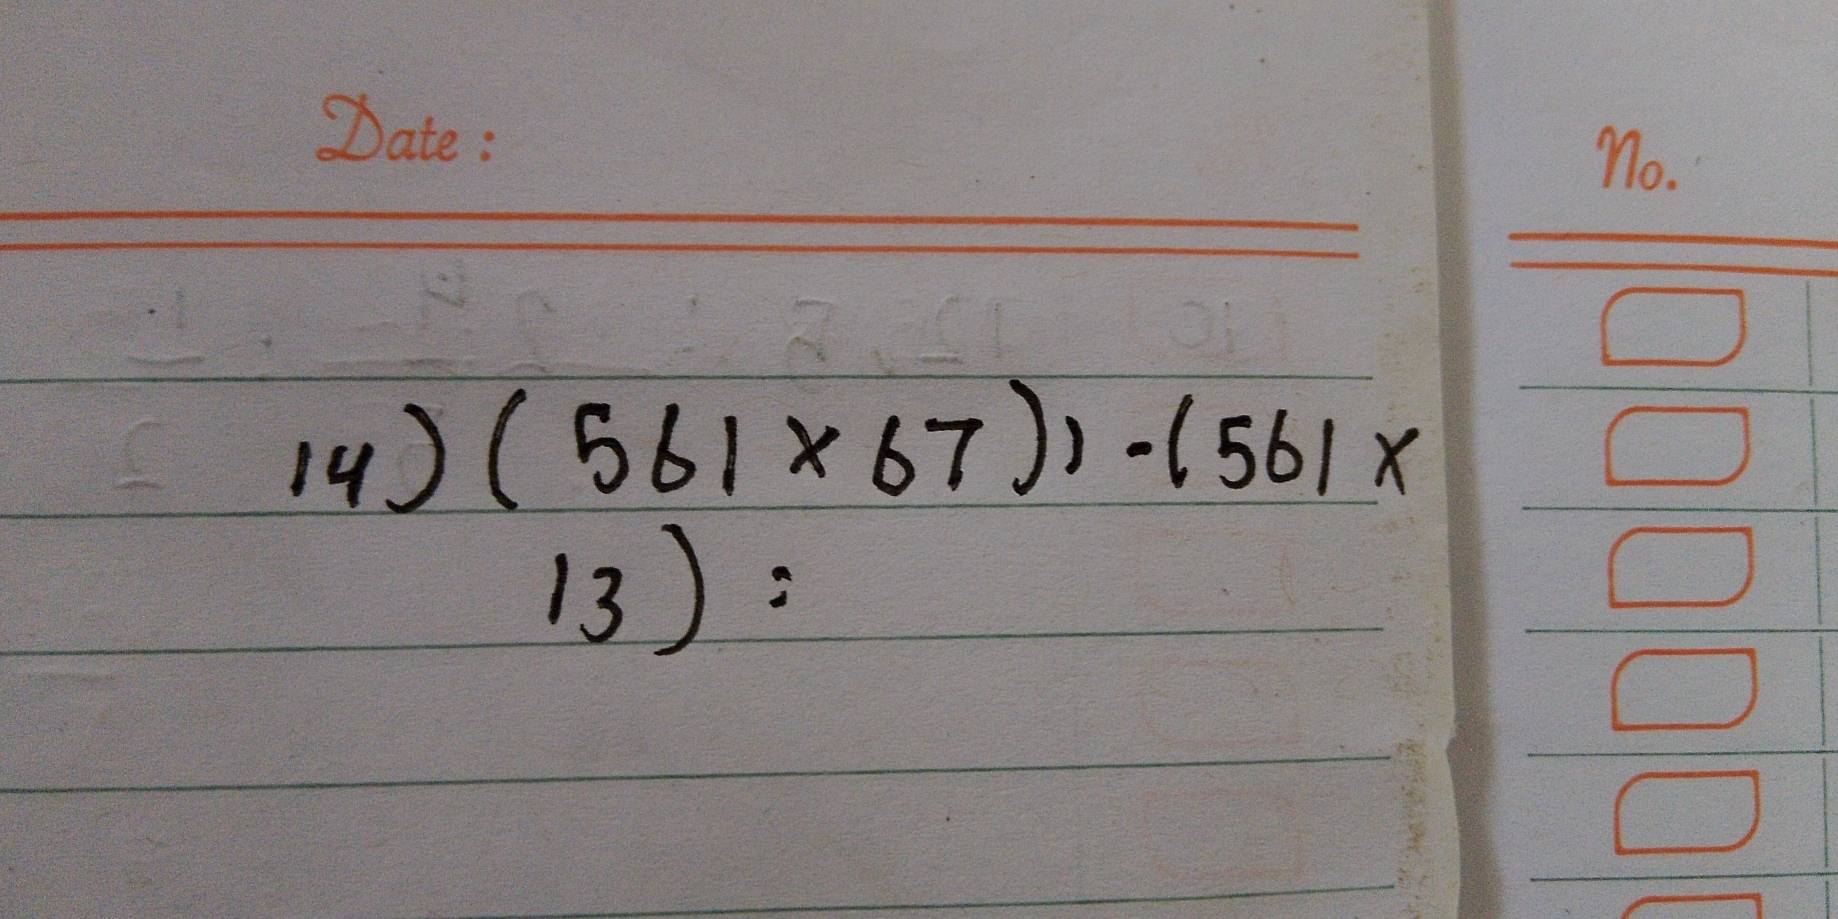 Date :
No.
14) (561 x 67)) - (561 x
13) :